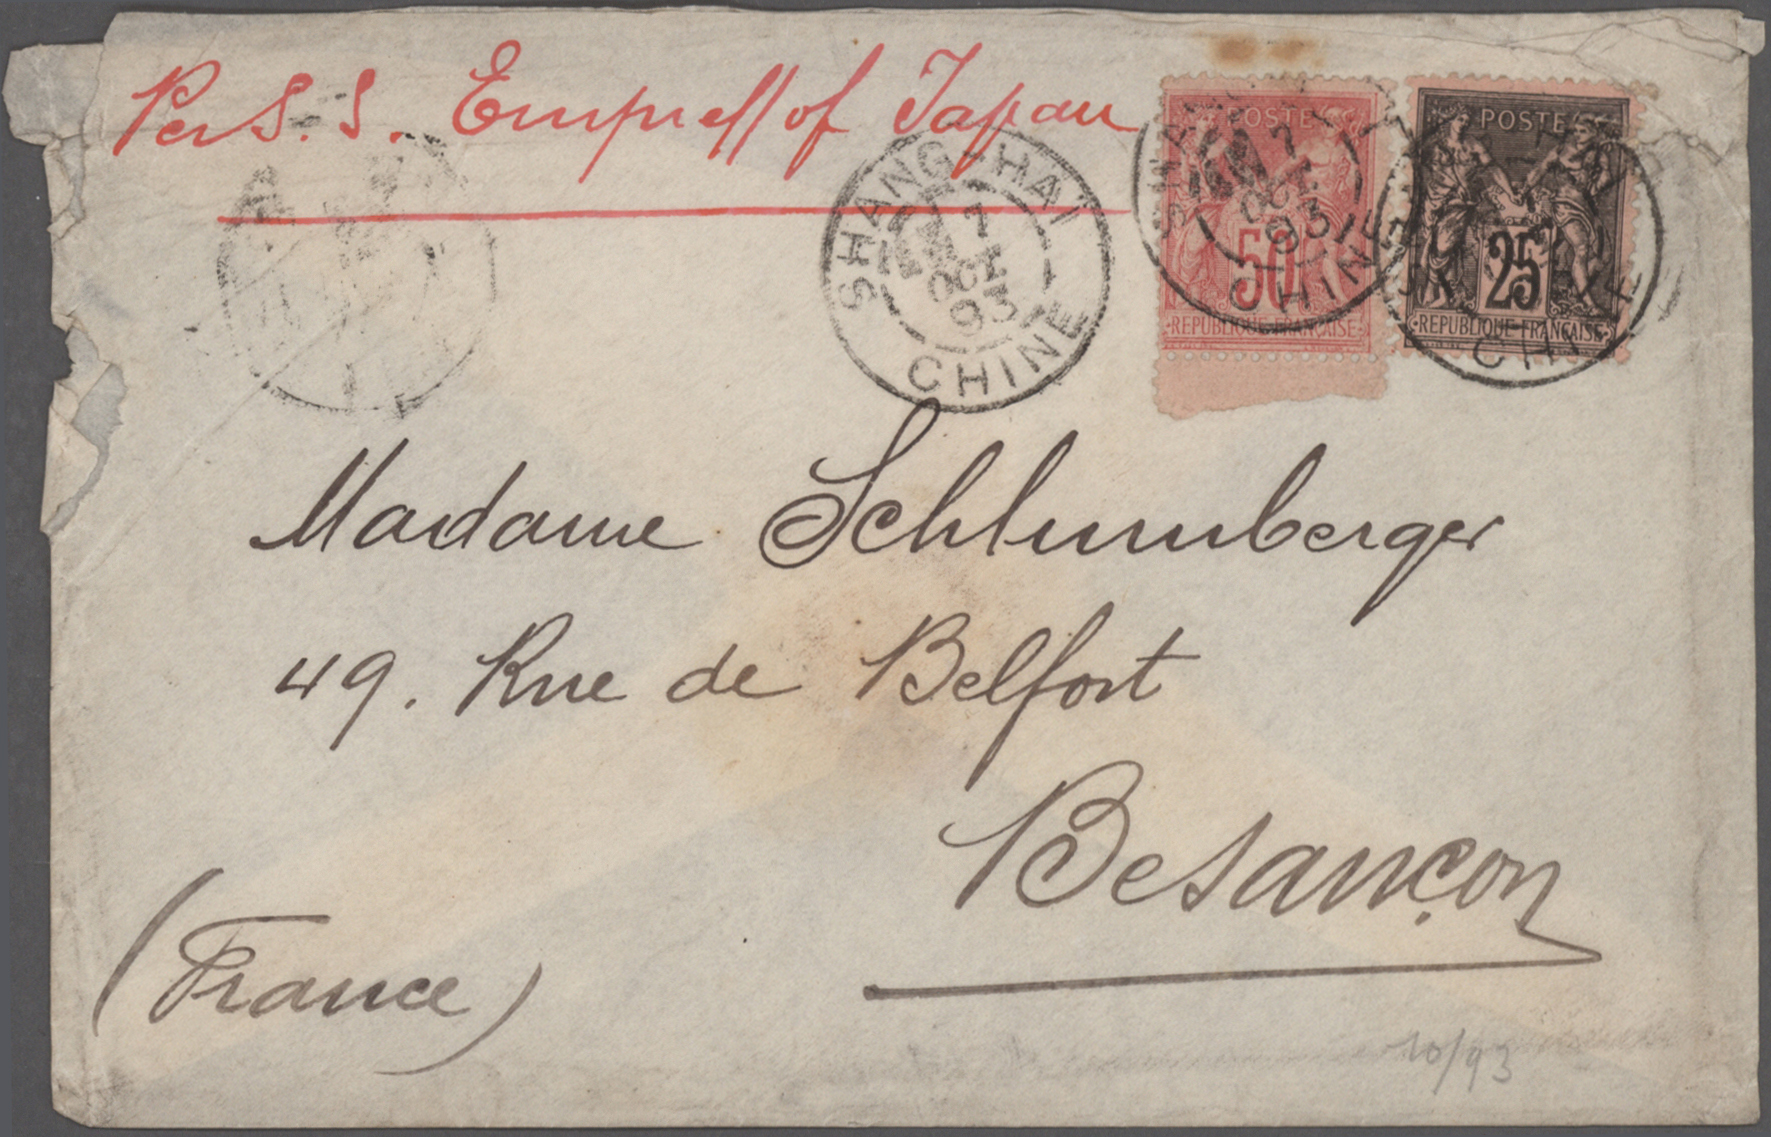 Per S.S. Empress of Japan
SHANG-HAI
7
OCT
93
CHINE
7
OCT
93
CHINE
POSTE
50
REPUBLIQUE FRANÇAISE
POSTE
25
REPUBLIQUE FRANÇAISE
CHINE
Madame Schlumberger
49. Rue de Belfort
Besançon
(France)
10/93